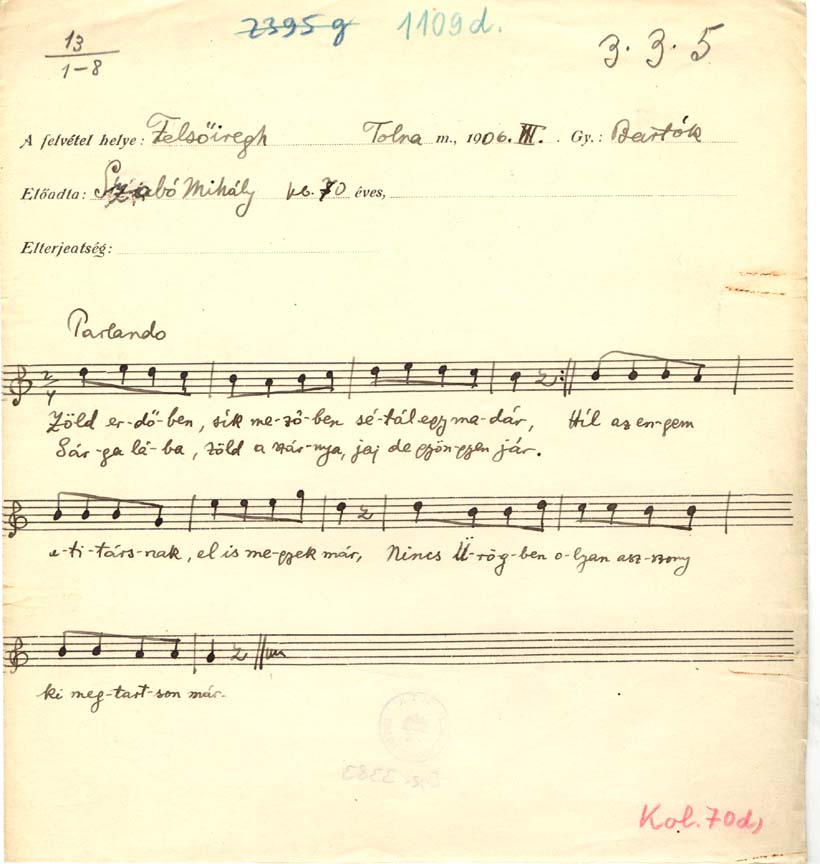 13
1-8
2395g 1109d.
3.3.5
A felvétel helye: Felsőiregh Tolna m., 1906. III. Gy.: Bartók
Előadta: Szabó Mihály kb. 70 éves,
Elterjeatség:
Parlando
2/4
Zöld er-dő-ben, sík me-ző-ben sé-tál egy ma-dár, Híl az en-gem
Sár-ga lá-ba, zöld a szár-nya, jaj de gyön-gyen jár.
u-ti-társ-nak, el is me-gyek már, Nincs Ü-rög-ben o-lyan asz-szony
ki meg-tart-son már.
3383
Kol. 70d)